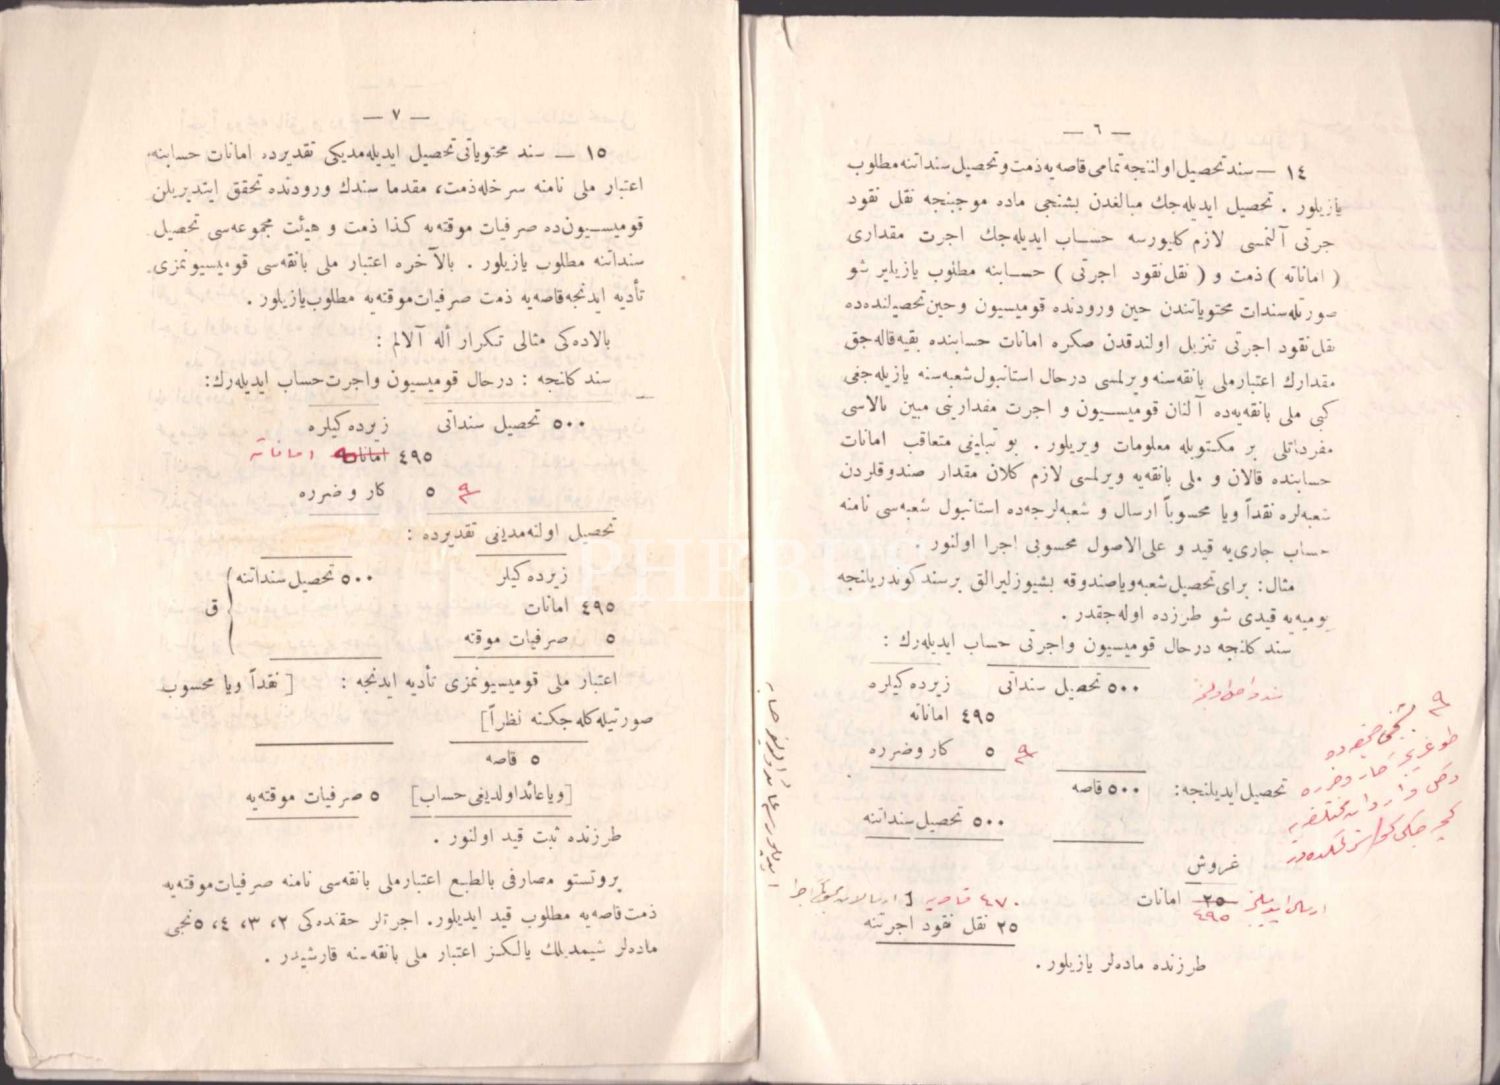 — ٦ —
١٤ — سند تحصیل اولننجه تمامی قاصه یه ذمت و تحصیل سنداتنه مطلوب
یازیلور . تحصیل ایدیله جك مبالغدن بشنجی ماده موجبنجه نقل نقود
جرتی آلنمسی لازم کلیورسه حساب ایدیله جك اجرت مقداری
( اماناته ) ذمت و ( نقل نقود اجرتی ) حسابنه مطلوب یازیلیر شو
صورتله سندات محتویاتندن حین ورودنده قومیسیون و حین تحصیلنده ده
نقل نقود اجرتی تنزیل اولندقدن صکره امانات حسابنده بقیه قاله جق
مقدارك اعتبار ملی بانقه سنه ویرلمسی درحال استانبول شعبه سنه یازیله جغی
کبی ملی بانقه یه ده آلنان قومیسیون و اجرت مقدارینی مبین بالاسی
مفرداتلی بر مکتوبله معلومات ویریلور . بو تبلیغی متعاقب امانات
حسابنده قالان و ملی بانقه یه ویرلمسی لازم کلان مقدار صندوقلردن
شعبه لره نقداً ویا محسوباً ارسال و شعبه لرجه ده استانبول شعبه سی نامنه
حساب جاری یه قید و علی الاصول محسوبی اجرا اولنور .
مثال : برای تحصیل شعبه ویا صندوقه بشیوز لیرالق بر سند کوندریلنجه
یومیه یه قیدی شو طرزده اوله جقدر .
سند کلنجه درحال قومیسیون و اجرتی حساب ایدیله رك :
٥٠٠ تحصیل سنداتی زیرده کیلره
٤٩٥ اماناته
٥ کار و ضرره
تحصیل ایدیلنجه : ٥٠٠ قاصه
٥٠٠ تحصیل سنداتنه
غروش
٢٥ امانات
٤٩٥
٤٧٠ قاصه یه
٢٥ نقل نقود اجرتنه
طرزنده ماده لر یازیلور .
— ٧ —
١٥ — سند محتویاتی تحصیل ایدیله مدیکی تقدیرده امانات حسابنه
اعتبار ملی نامنه سر خله ذمت ، مقدما سندك ورودنده تحقق ایتدیریلن
قومیسیون ده صرفیات موقته یه کذا ذمت و هیئت مجموعه سی تحصیل
سنداتنه مطلوب یازیلور . بالآخره اعتبار ملی بانقه سی قومیسیونمزی
تأدیه ایدنجه قاصه یه ذمت صرفیات موقته یه مطلوب یازیلور .
بالاده کی مثالی تکرار أله آلالم :
سند کلنجه : درحال قومیسیون و اجرت حساب ایدیله رك :
٥٠٠ تحصیل سنداتی زیرده کیلره
٤٩٥ اماناته اماناته
٥ کار و ضرره
تحصیل اولنه مدیغی تقدیرده :
زیرده کیلر ٥٠٠ تحصیل سنداتنه
٤٩٥ امانات ق
٥ صرفیات موقته
اعتبار ملی قومیسیونمزی تأدیه ایدنجه : [ نقداً ویا محسوب
صورتیله کله جکنه نظراً ]
٥ قاصه
[ ویا عائد اولدیغی حساب ] ٥ صرفیات موقته یه
طرزنده ثبت قید اولنور .
پروتستو مصارفی بالطبع اعتبار ملی بانقه سی نامنه صرفیات موقته یه
ذمت قاصه یه مطلوب قید ایدیلور . اجرتلر حقنده کی ٢ ، ٣ ، ٤ ، ٥ نجی
ماده لر شیمدیلك یالکز اعتبار ملی بانقه سنه قارشیدر .
PHEBUS